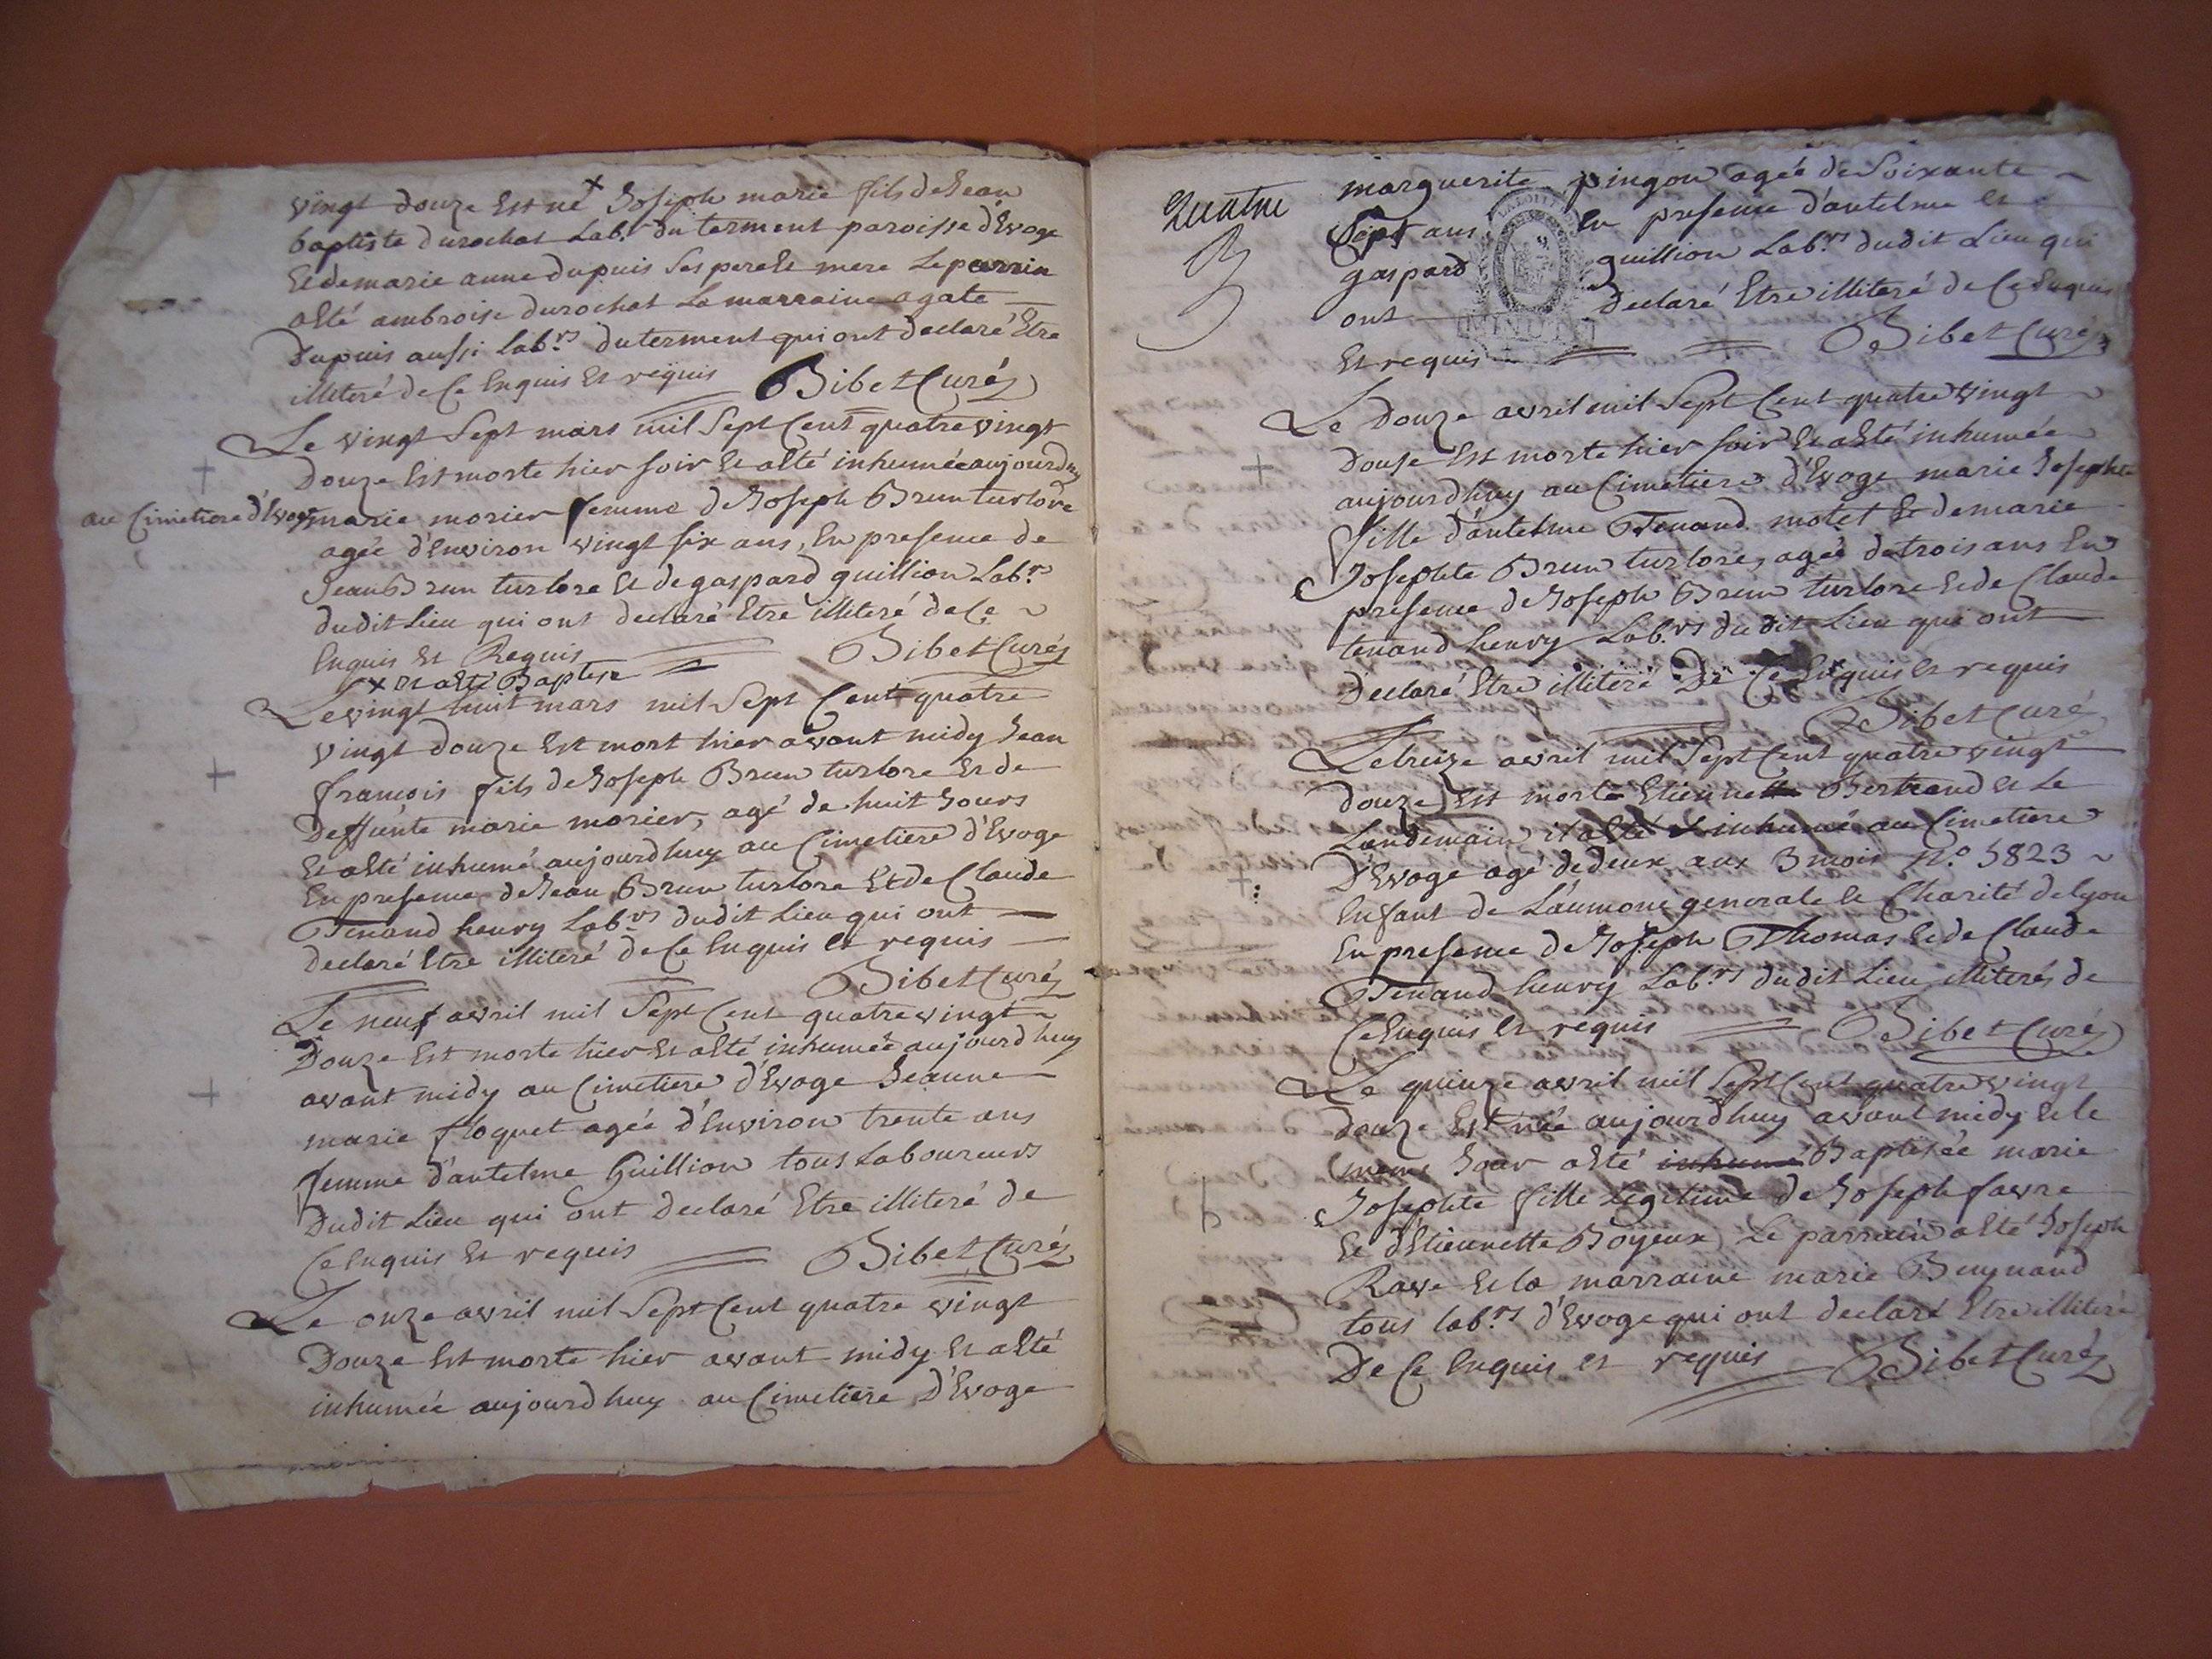 vingt douze Est né x Joseph marie fils de Jean
baptiste durochat Lab.r du terment paroisse d'Evoge
Et de marie anne dupuis ses pere Et mere Le parrin
a Eté ambroise durochat La marraine agate
Dupuis aussi Lab.rs du terment qui ont declaré Etre
illiteré de Ce Enquis Et requis Bibet Curé
Le vingt Sept mars mil Sept Cent quatre vingt
Douze Est morte hier soir Et a Eté inhumée aujourdhuy
au Cimetiere d'Evoge marie morier femme de Joseph Brun turlore
agée d'Environ vingt six ans, En presence de
Jean Brun turlore Et de gaspard guillion Lab.rs
dudit Lieu qui ont declaré Etre illiteré de Ce
Enquis Et Requis Bibet Curé
x Et a Eté Baptisé
Le vingt huit mars mil Sept Cent quatre
vingt douze Est mort hier avant midy Jean
francois fils de Joseph Brun turlore Et de
Deffunte marie morier, agé de huit Jours
Et a Eté inhumé aujourdhuy au Cimetiere d'Evoge
En presence de Jean Brun turlore Et de Claude
Tenand henry Lab.rs dudit Lieu qui ont
declaré Etre illiteré de Ce Enquis Et requis
Bibet Curé
Le neuf avril mil Sept Cent quatre vingt
Douze Est morte hier Et a Eté inhumée aujourdhuy
avant midy au Cimetiere d'Evoge Jeanne
marie floquet agée d'Environ trente ans
femme d'antelme Guillion tous Laboureurs
Dudit Lieu qui ont Declaré Etre illiteré de
Ce Enquis Et requis Bibet Curé
Le onze avril mil Sept Cent quatre vingt
Douze Est morte hier avant midy Et a Eté
inhumée aujourdhuy au Cimetiere D'Evoge
quatre
marguerite pingon agée de Soixante
Sept ans En presence d'antelme Et
gaspard guillion Lab.rs dudit Lieu qui
ont Declaré Etre illiteré de Ce Enquis
MINUTE
Et requis Bibet Curé
Le Douze avril mil Sept Cent quatre vingt
Douse Est morte hier soir Et a Eté inhumée
aujourdhuy au Cimetiere d'Evoge marie Josephte
fille d'antelme Tenand motet Et de marie
Josephte Brun turlore, agée de trois ans En
presence de Joseph Brun turlore Et de Claude
tenand henry Lab.rs dudit Lieu qui ont
Declaré Etre illiteré De Ce Enquis Et requis
Bibet Curé
Le treize avril mil Sept Cent quatre vingt
douze Est morte Etienne Bertrand Et Le
Landemain il a Eté inhumé au Cimetiere
D'Evoge agé de deux ans 3 mois N.o 5823
Enfant de L'aumone generale Et Charité de Lyon
En presence de Joseph Thomas Et de Claude
Tenand henry Lab.rs dudit Lieu illiterés de
Ce Enquis Et requis Bibet Curé
Le quinze avril mil Sept Cent quatre vingt
douze Est née aujourdhuy avant midy Et le
meme Jour a Eté inhumé Baptisée marie
Josephte fille Legitime de Joseph favre
Et d'Etiennette Boyeux Le parrain a Eté Joseph
Rave Et la marraine marie Beugnand
tous lab.rs d'Evoge qui ont declaré Etre illiteré
De Ce Enquis Et requis Bibet Curé